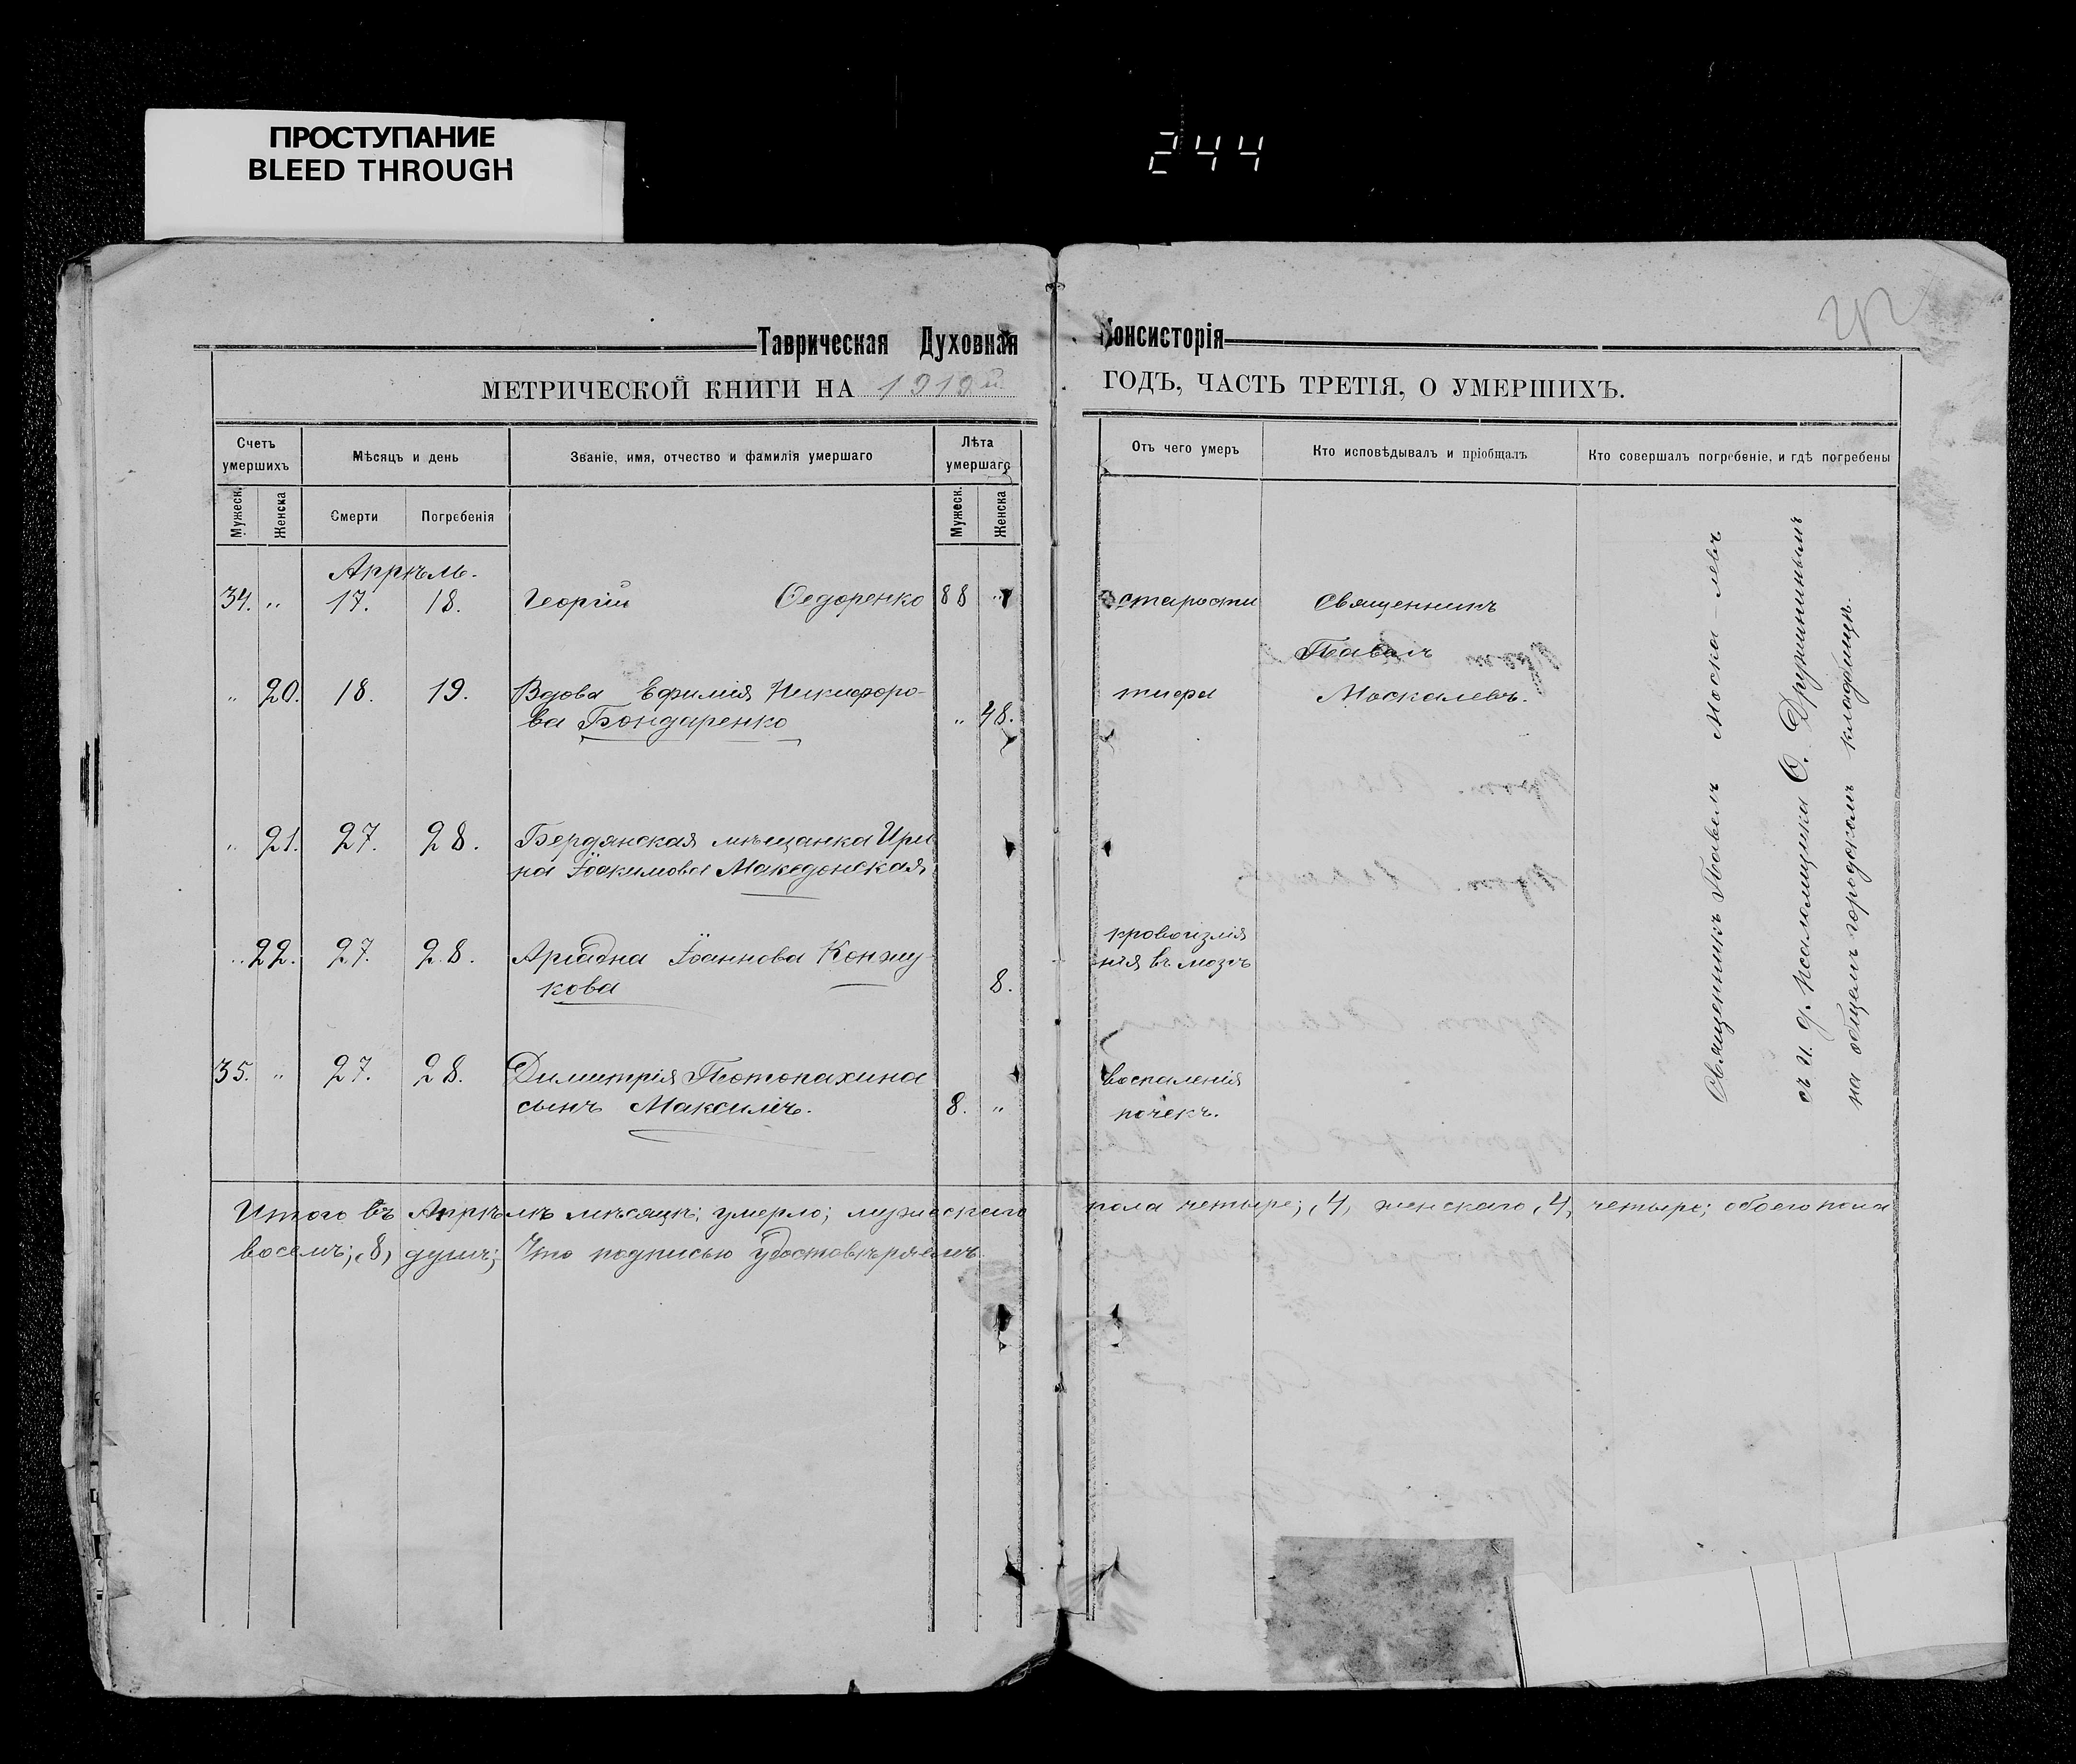 ПРОСТУПАНИЕ
BLEED THROUGH
244
Таврическая Духовная Консисторія
МЕТРИЧЕСКОЙ КНИГИ НА 1919й ГОДЪ, ЧАСТЬ ТРЕТІЯ, О УМЕРШИХЪ.
Счетъ умершихъ
Мѣсяцъ и день
Званіе, имя, отчество и фамилія умершаго
Лѣта умершаго
Отъ чего умеръ
Кто исповѣдывалъ и пріобщалъ
Кто совершалъ погребеніе, и гдѣ погребены
Мужеск.
Женска
Смерти
Погребенія
Мужеск.
Женска
Апрѣль.
34. " 17. 18. Георгій Ѳедоренко 88 " старости Священникъ
Павелъ
" 20. 18. 19. Вдова Ефимія Никифоро- тифа Москалевъ.
ва Бондаренко " 48.
" 21. 27. 28. Бердянская мѣщанка Ири
на Іоакимова Македонская
" 22. 27. 28. Аріадна Іоаннова Конжу- кровоизлія
кова 8. нія въ мозгъ
35. " 27. 28. Димитрія Потопахина воспаленія
сынъ Максимъ. 8. " почекъ.
Священникъ Павелъ Моска-левъ
съ и. д. псаломщика Ѳ. Дружининымъ
на общемъ городскомъ кладбищѣ.
Итого въ Апрѣлѣ мѣсяцѣ; умерло; мужескаго пола четыре; ,4, женскаго ,4, четыре; обоего пола
восемъ; ,8, душъ; Что подписью удостовѣряемъ